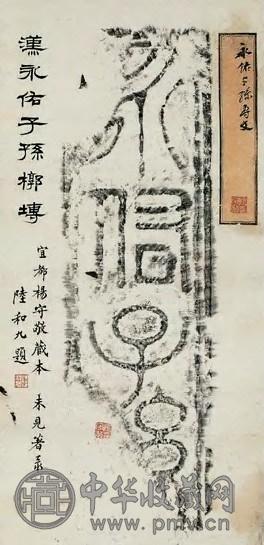 永佑子孫專文
永佑子孫
漢永佑子孫槨塼
宜都楊守敬藏本 未見著彔
陸和九題
中华收藏网
www.pmv.cn